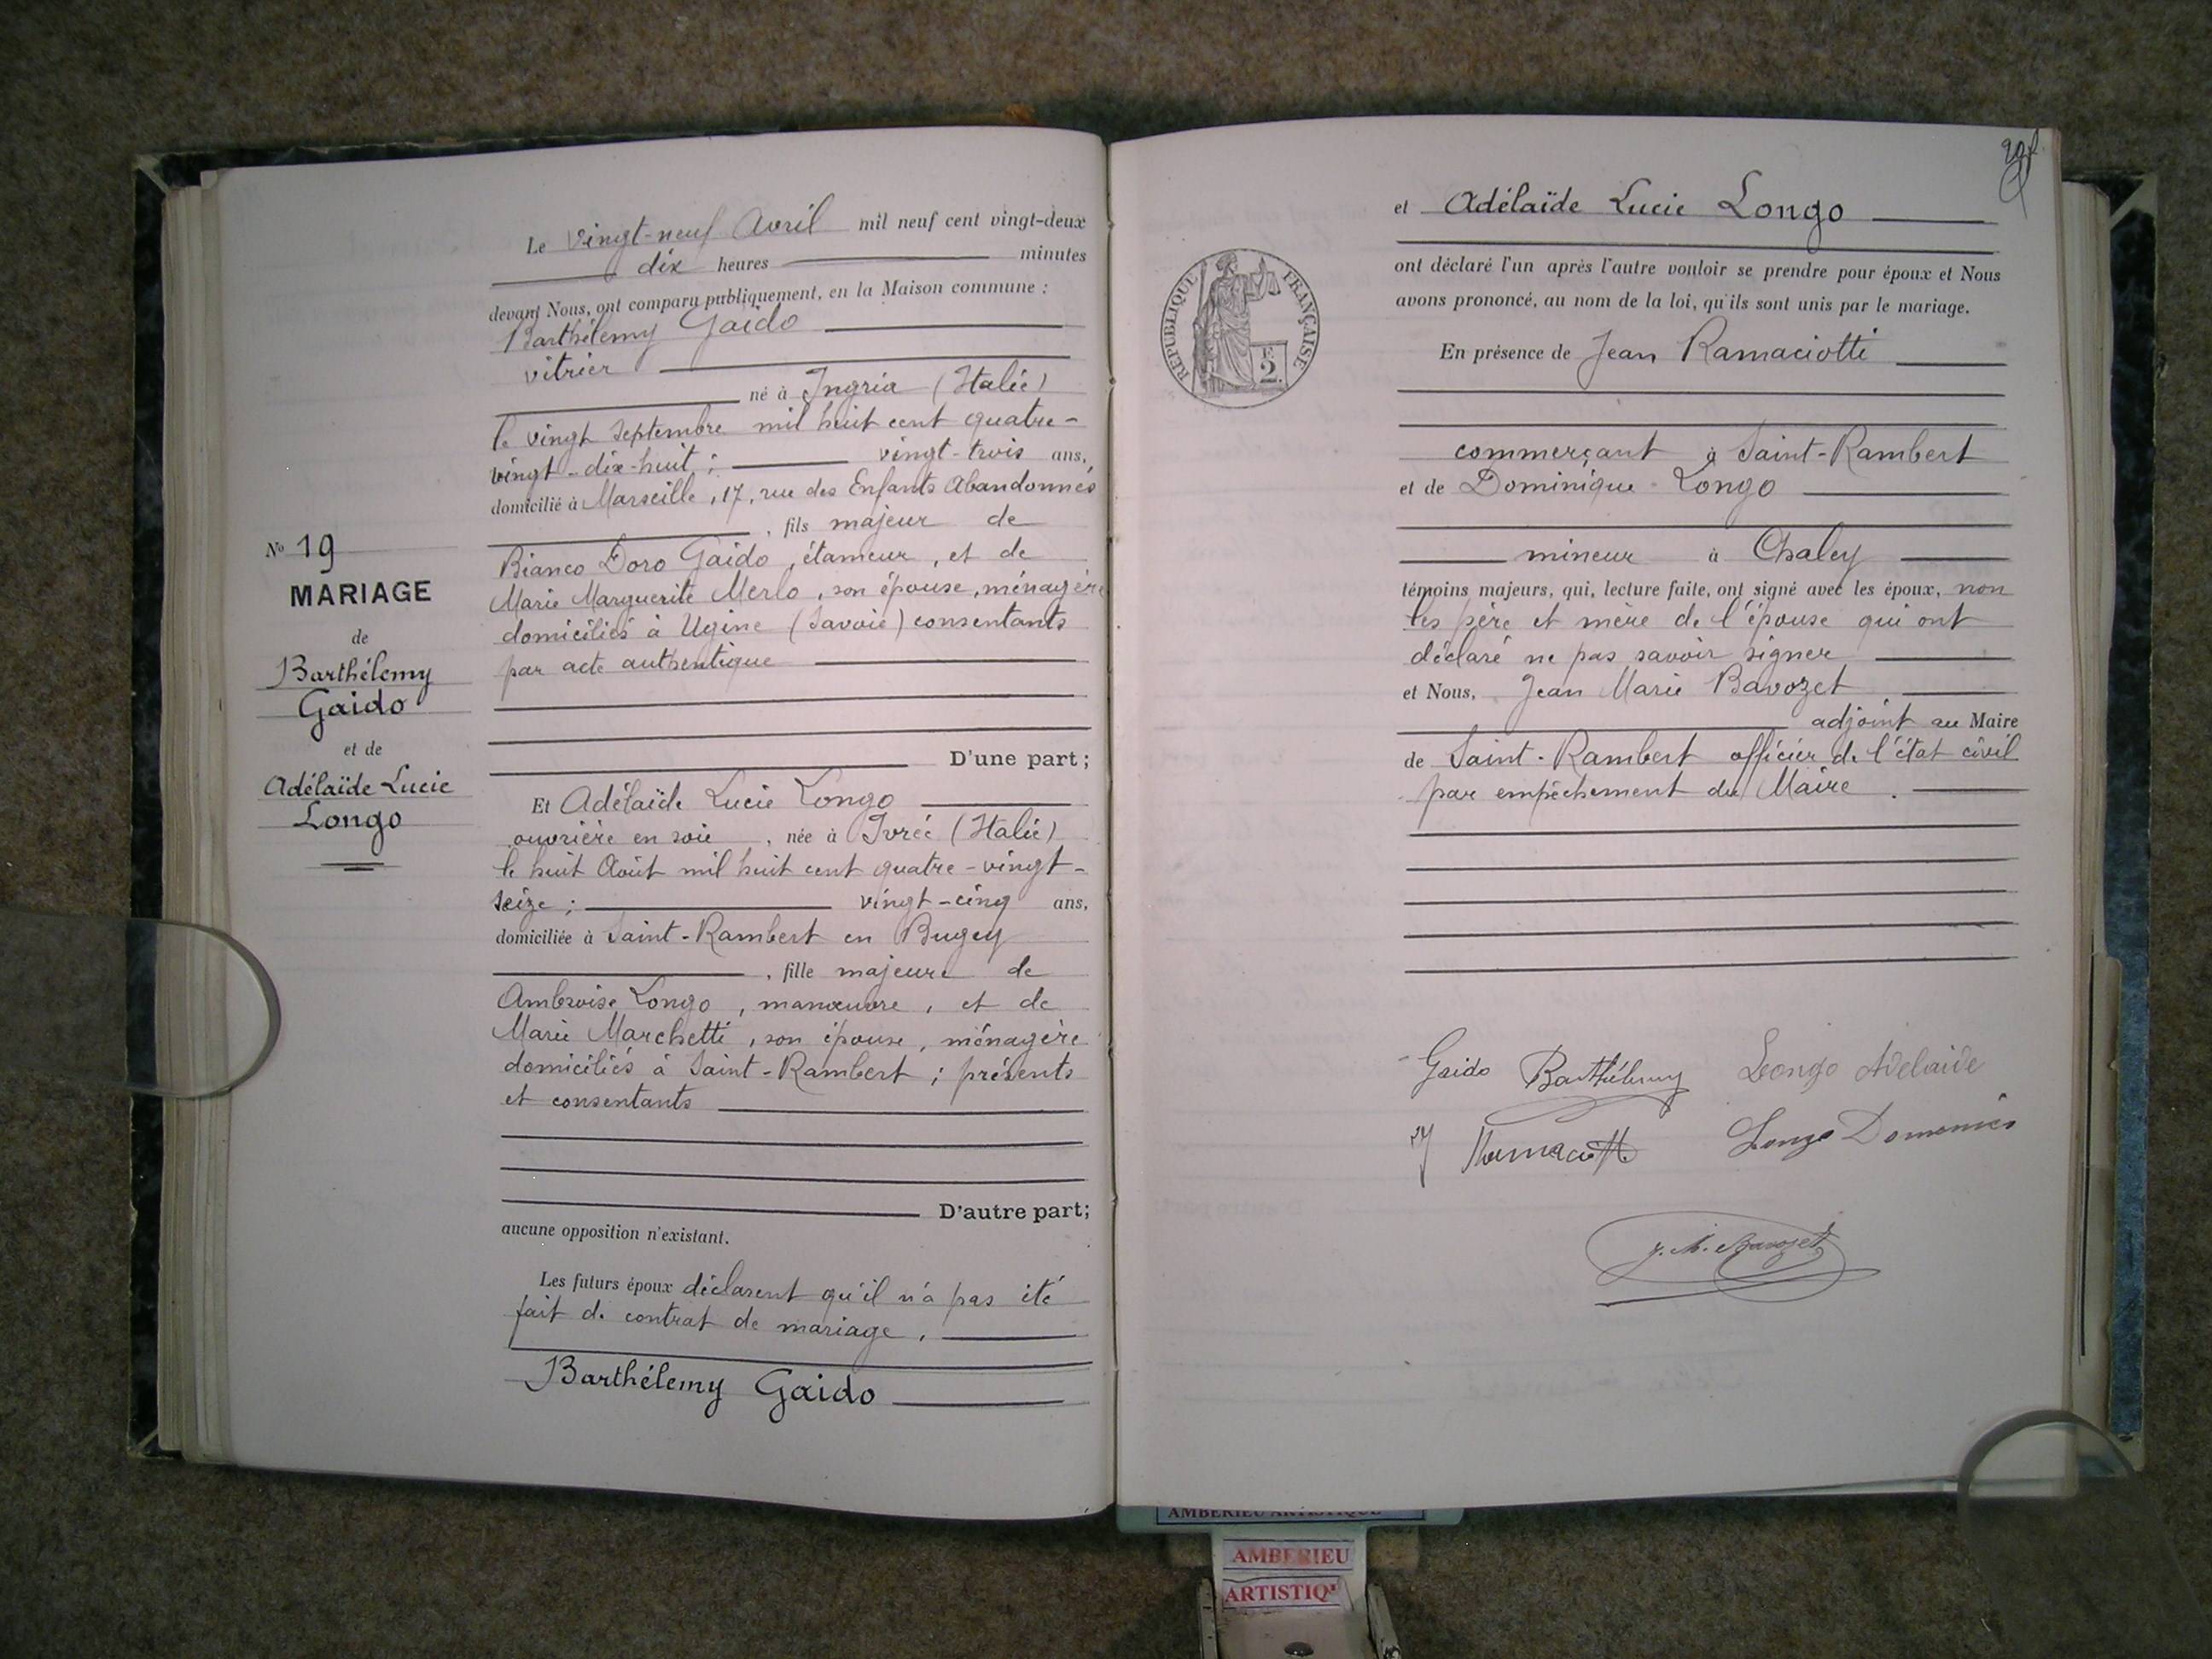 N° 19
MARIAGE
de
Barthélemy
Gaido
et de
Adélaïde Lucie
Longo
Le vingt-neuf Avril mil neuf cent vingt-deux
dix heures minutes
devant Nous, ont comparu publiquement, en la Maison commune :
Barthélemy Gaido
vitrier
né à Ingria (Italie)
le vingt Septembre mil huit cent quatre-
vingt-dix-huit ; vingt-trois ans,
domicilié à Marseille, 17, rue des Enfants Abandonnés
, fils majeur de
Bianco Doro Gaido, étameur, et de
Marie Marguerite Merlo, son épouse, ménagère
domiciliés à Ugine (Savoie) consentants
par acte authentique
D'une part;
Et Adélaïde Lucie Longo
ouvrière en soie, née à Ivrée (Italie)
le huit Août mil huit cent quatre-vingt-
seize ; vingt-cinq ans,
domiciliée à Saint-Rambert en Bugey
, fille majeure de
Ambroise Longo, manœuvre, et de
Marie Marchetti, son épouse, ménagère
domiciliés à Saint-Rambert ; présents
et consentants
D'autre part;
aucune opposition n'existant.
Les futurs époux déclarent qu'il n'a pas été
fait de contrat de mariage.
Barthélemy Gaido
et Adélaïde Lucie Longo
ont déclaré l'un après l'autre vouloir se prendre pour époux et Nous
avons prononcé, au nom de la loi, qu'ils sont unis par le mariage.
RÉPUBLIQUE FRANÇAISE
2
En présence de Jean Ramaciotti
commerçant à Saint-Rambert
et de Dominique Longo
mineur à Chaley
témoins majeurs, qui, lecture faite, ont signé avec les époux, non
les père et mère de l'épouse qui ont
déclaré ne pas savoir signer
et Nous, Jean Marie Bavozet
adjoint au Maire
de Saint-Rambert officier de l'état civil
par empêchement du Maire.
Gaido Barthélemy Longo Adelaide
Ramaciotti Longo Domenico
J. M. Bavozet
AMBERIEU ARTISTIQUE
AMBERIEU
ARTISTIQ